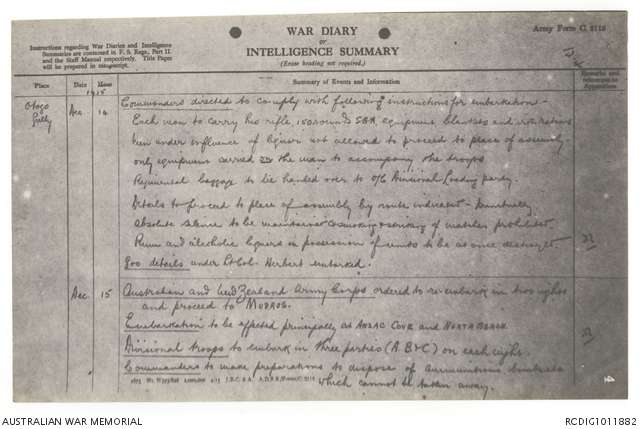 WAR DIARY
or
INTELLIGENCE SUMMARY
(Erase heading not required.)
Army Form C. 2118
Instructions regarding War Diaries and Intelligence
Summaries are contained in F. S. Regs., Part II.
and the Staff Manual respectively. Title Pages
will be prepared in manuscript.
Place Date Hour Summary of Events and Information Remarks and references to Appendices
1915
Otago Gully Dec. 14 Commanders directed to comply with following instructions for embarkation -
Each man to carry his rifle, 150 rounds SAA equipment blankets and iron rations
Men under influence of liquor not allowed to proceed to place of assembly
only equipment carried on the man to accompany the troops
Regimental baggage to be handed over to O/C Divisional Loading party.
Details to proceed to place of assembly by route indicated - punctually
Absolute silence to be maintained & smoking & striking of matches prohibited
Rum and alcoholic liquors in possession of units to be at once destroyed.
500 details under Lt-Col. Herbert embarked.
Dec. 15 Australian and New Zealand Army Corps ordered to re-embark in two nights
and proceed to MUDROS.
Embarkation to be effected principally at ANZAC COVE and NORTH BEACH
Divisional troops to embark in three parties (A B & C) on each night.
Commanders to make preparations to dispose of ammunition & material
which cannot be taken away.
4
AUSTRALIAN WAR MEMORIAL
RCDIG1011882